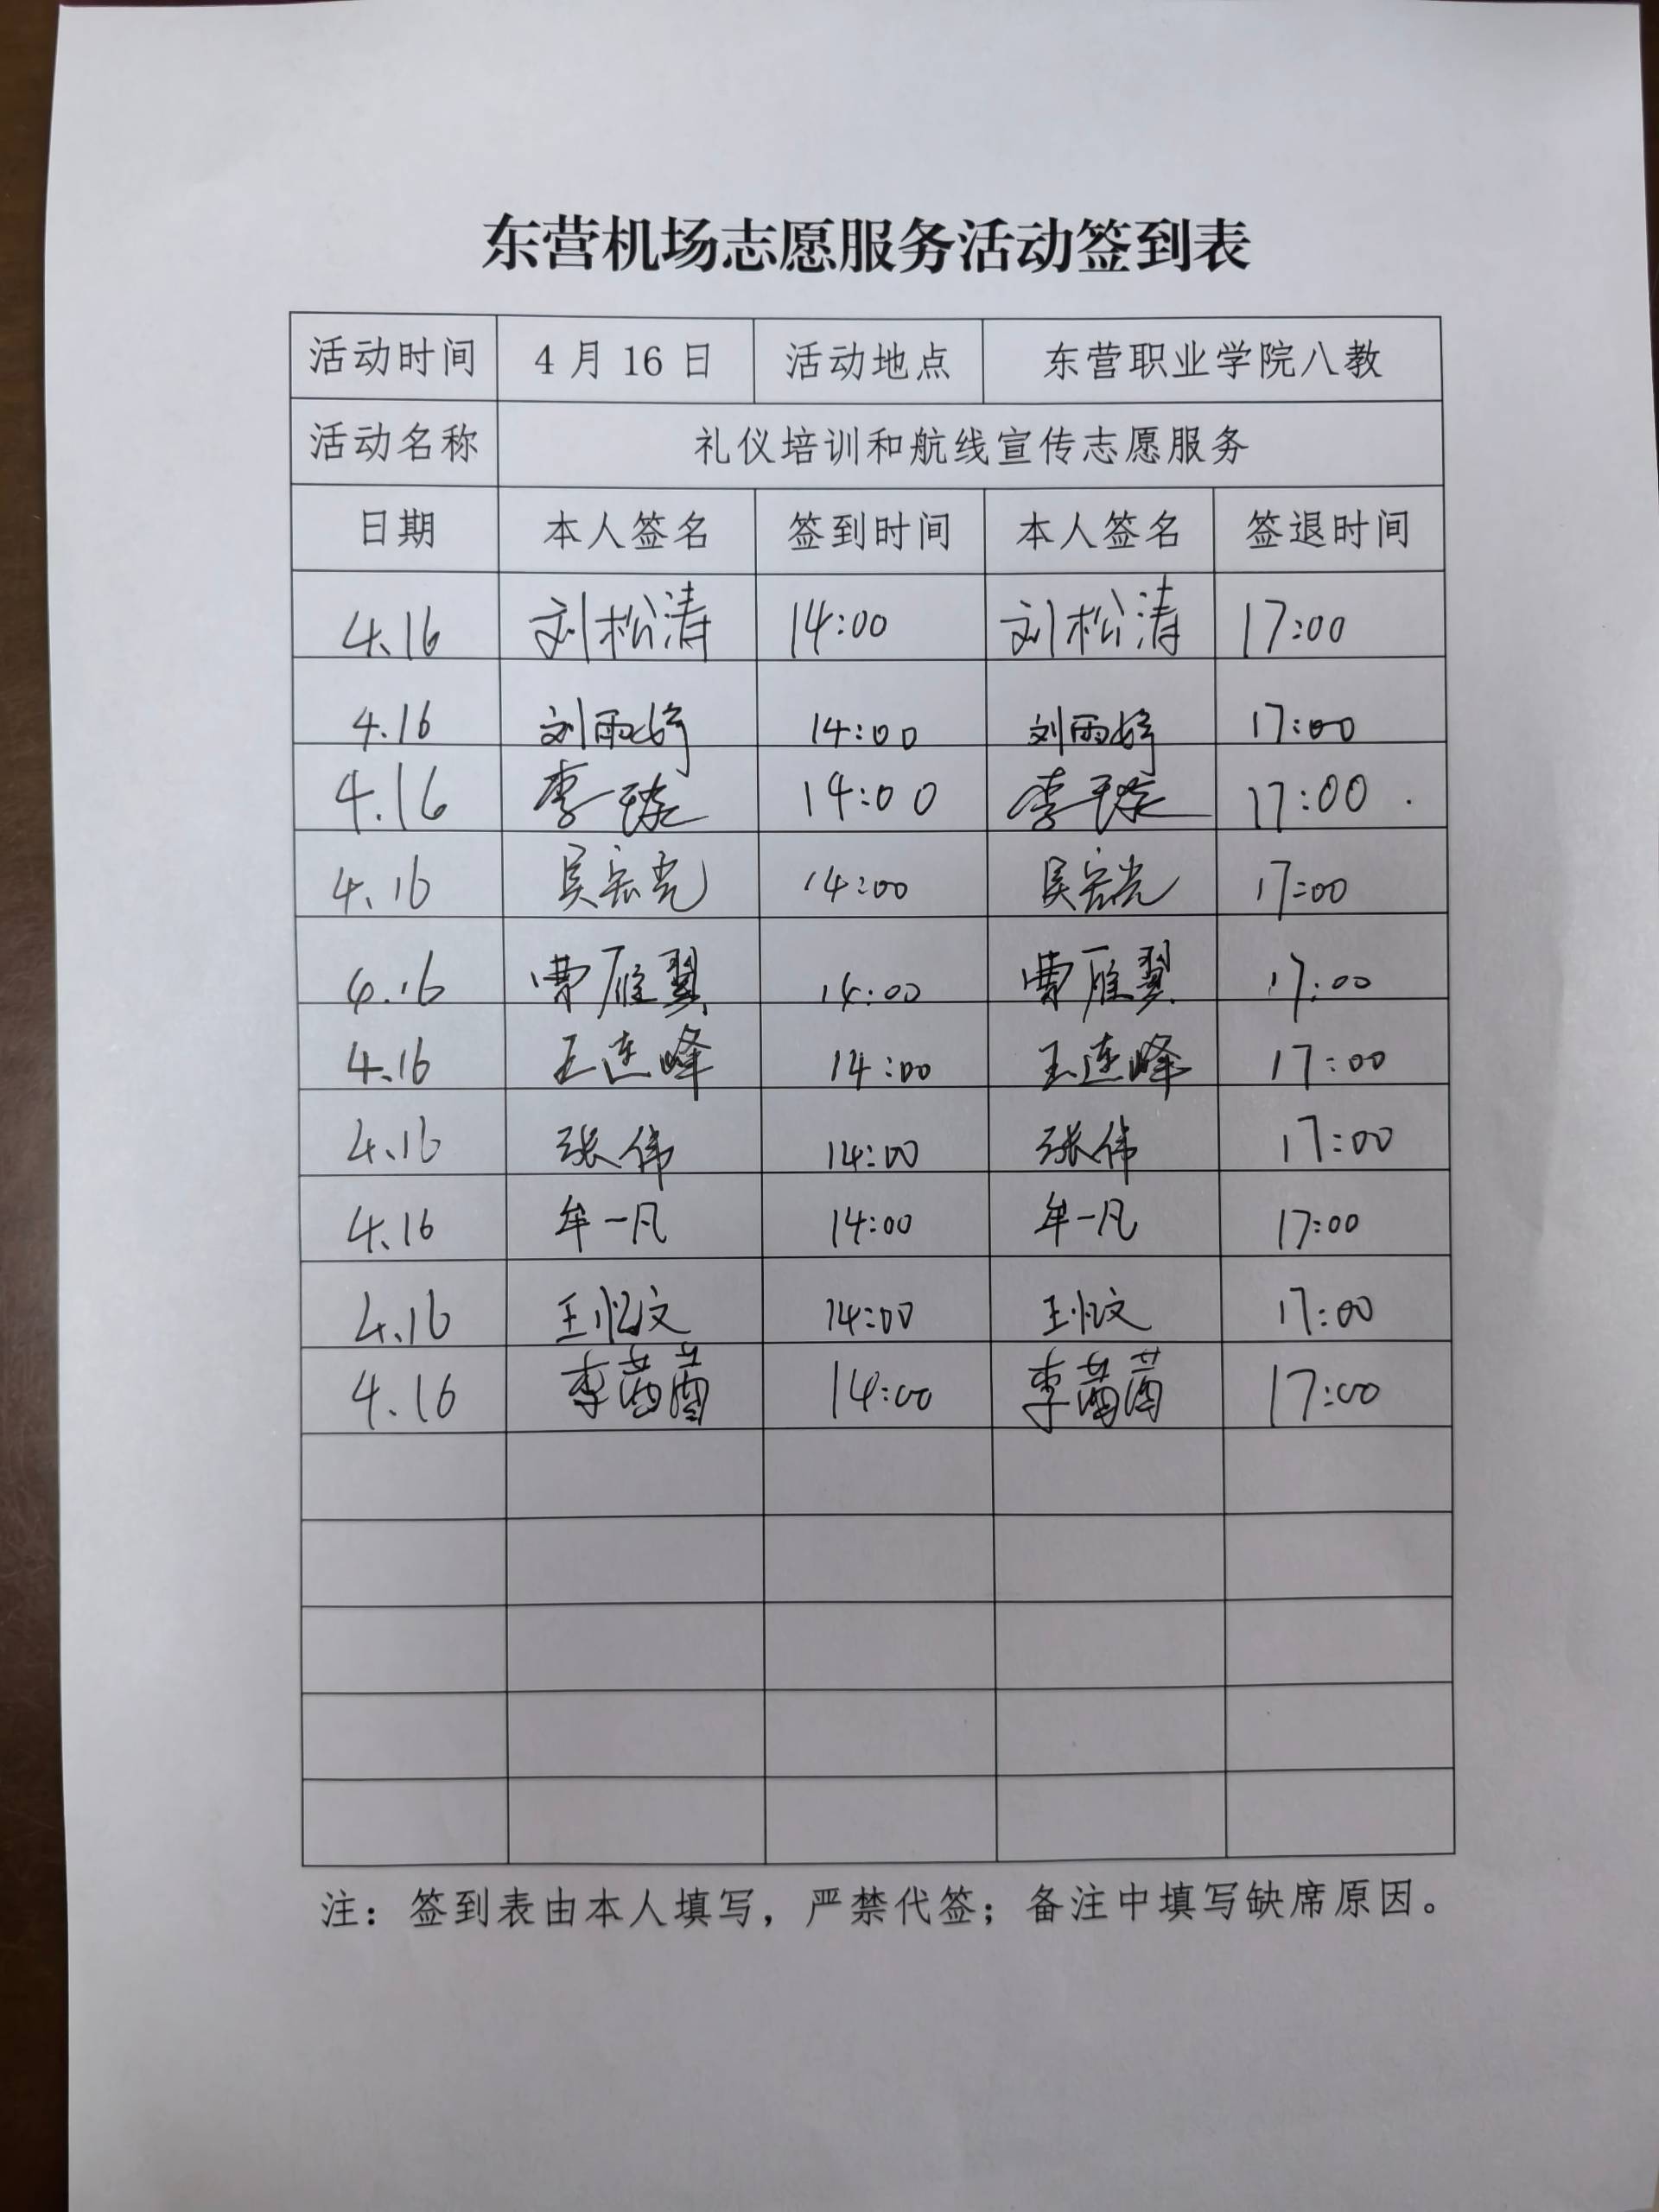 东营机场志愿服务活动签到表
活动时间 4月16日 活动地点 东营职业学院八教
活动名称 礼仪培训和航线宣传志愿服务
日期 本人签名 签到时间 本人签名 签退时间
4.16 刘松涛 14:00 刘松涛 17:00
4.16 刘雨婷 14:00 刘雨婷 17:00
4.16 李 14:00 李 17:00
4.16 吴宏光 14:00 吴宏光 17:00
4.16 曹雁翼 14:00 曹雁翼 17:00
4.16 王连峰 14:00 王连峰 17:00
4.16 张伟 14:00 张伟 17:00
4.16 牟一凡 14:00 牟一凡 17:00
4.16 王忆文 14:00 王忆文 17:00
4.16 李茜茜 14:00 李茜茜 17:00
注：签到表由本人填写，严禁代签；备注中填写缺席原因。